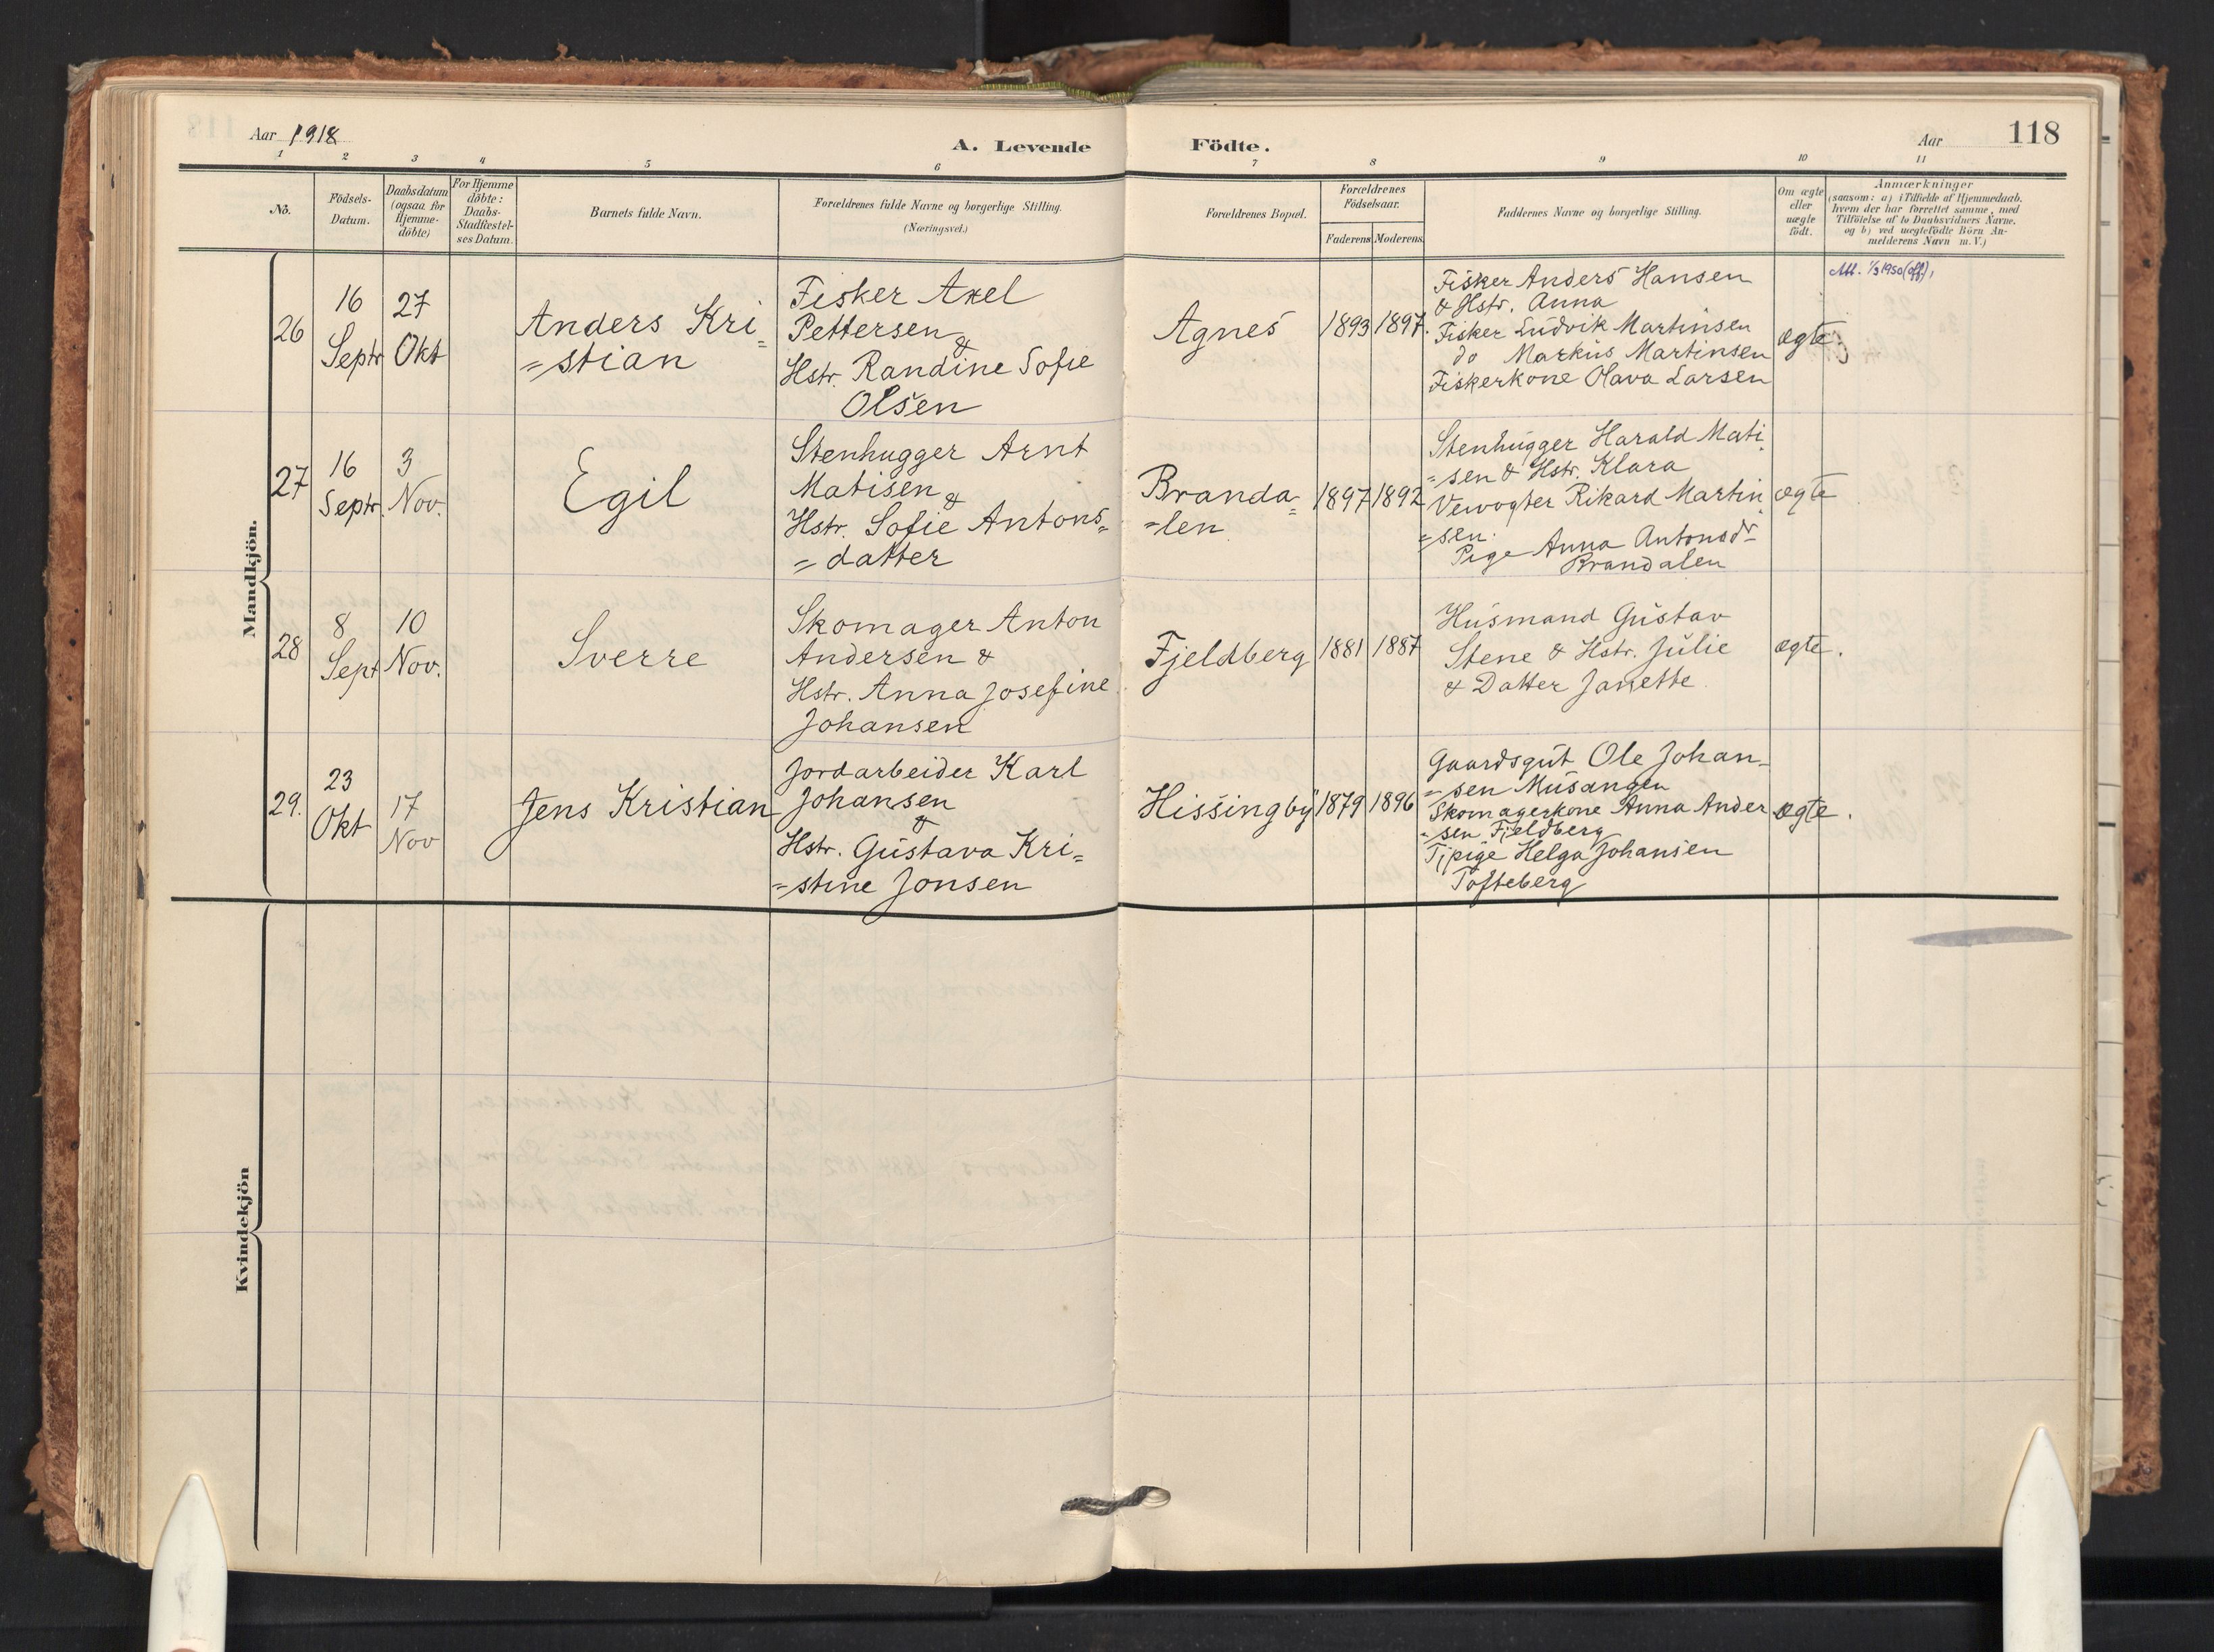 Aar 1918
A. Levende Födte.
Aar
118
1 2 3 4 5 6 7 8 9 10 11
No.
Födsels-
Datum.
Daabsdatum
(ogsaa for
Hjemme-
döbte)
For Hjemme
döbte:
Daabs-
Stadfæstel-
ses Datum.
Barnets fulde Navn.
Forældrenes fulde Navne og borgerlige Stilling.
(Næringsvei.)
Forældrenes Bopæl.
Forældrenes
Födselsaar.
Faderens
Moderens.
Faddernes Navne og borgerlige Stilling.
Om ægte
eller
uægte
födt.
Anmærkninger
(saasom: a) i Tilfælde af Hjemmedaab.
hvem der har forrettet samme, med
Tilföielse af to Daabsvidners Navne.
og b) ved uægtefödte Börn An-
melderens Navn m.V.)
Mandkjön.
26
16
Septr
27
Okt
Anders Kri
=stian
Fisker Axel
Pettersen
&
Hstr. Randine Sofie
Olsen
Agnes
1893
1897.
Fisker Anders Hansen
& Hstr. Anna
Fisker Ludvik Martinsen
do Markus Martinsen
Fiskerkone Olava Larsen
ægte
Att. 1/3 1950 (off),
27
16
Septr.
3
Nov.
Egil
Stenhugger Arnt
Matisen
&
Hstr. Sofie Antons=
=datter
Branda=
=len
1897
1892
Stenhugger Harald Mati
=sen & Hstr. Klara
Rikard Martin
=sen.
Pige Anna Antonsdr
Brandalen
ægte
28
8
Sept
10
Nov.
Sverre
Skomager Anton
Andersen &
Hstr. Anna Josefine
Johansen
Fjeldberg
1881
1887
Husmand Gustav
Stene & Hstr. Julie
& Datter Janette
ægte.
29.
23
Okt
17
Nov
Jens Kristian
Jordarbeider Karl
Johansen
&
Hstr. Gustava Kri=
=stine Jonsen
Hissingby
1879
1896
Gaardsgut Ole Johan=
=sen Musangen
Skomagerkone Anna Ander
=sen Fjeldberg
Tjpige Helga Johansen
Tofteberg
ægte.
Kvindekjön